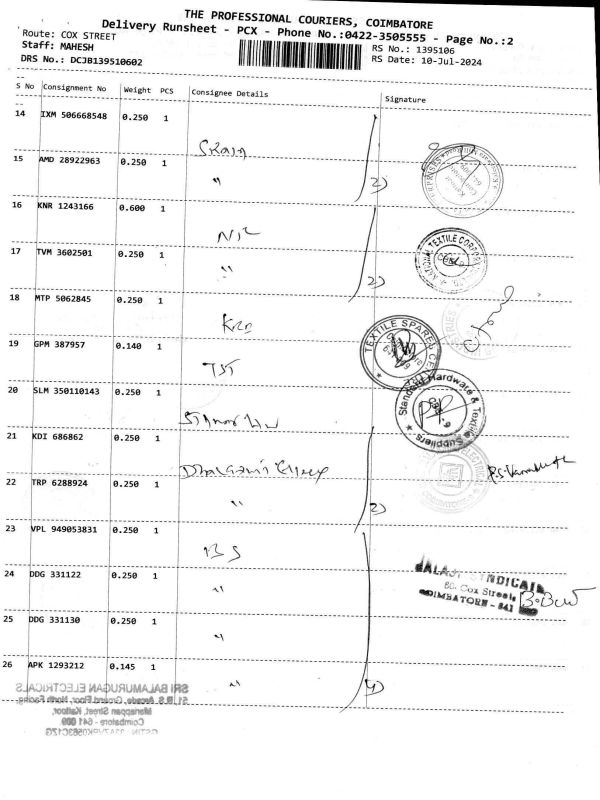 THE PROFESSIONAL COURIERS, COIMBATORE
Delivery Runsheet - PCX - Phone No.:0422-3505555 - Page No.:2
Route: COX STREET
RS No.: 1395106
Staff: MAHESH
RS Date: 10-Jul-2024
DRS No.: DCJB139510602
S No Consignment No Weight PCS Consignee Details Signature
14 IXM 506668548 0.250 1
15 AMD 28922963 0.250 1 " 2)
16 KNR 1243166 0.600 1
17 TVM 3602501 0.250 1 " 2)
NATIONAL TEXTILE CORPOR
18 MTP 5062845 0.250 1
19 GPM 387957 0.140 1
TEXTILE SPARES CE
TST
20 SLM 350110143 0.250 1
Standard Hardware & Textile Suppliers
21 KDI 686862 0.250 1
22 TRP 6288924 0.250 1 " 2)
23 VPL 949053831 0.250 1
BS
24 DDG 331122 0.250 1 "
BALAJI SYNDICATE
80, Cox Street,
COIMBATORE - 641
25 DDG 331130 0.250 1 "
26 APK 1293212 0.145 1 " 4)
SRI BALAMURUGAN ELECTRICALS
Arcade, Ground Floor, North Facing
Street, Kattoor,
Coimbatore - 641 009